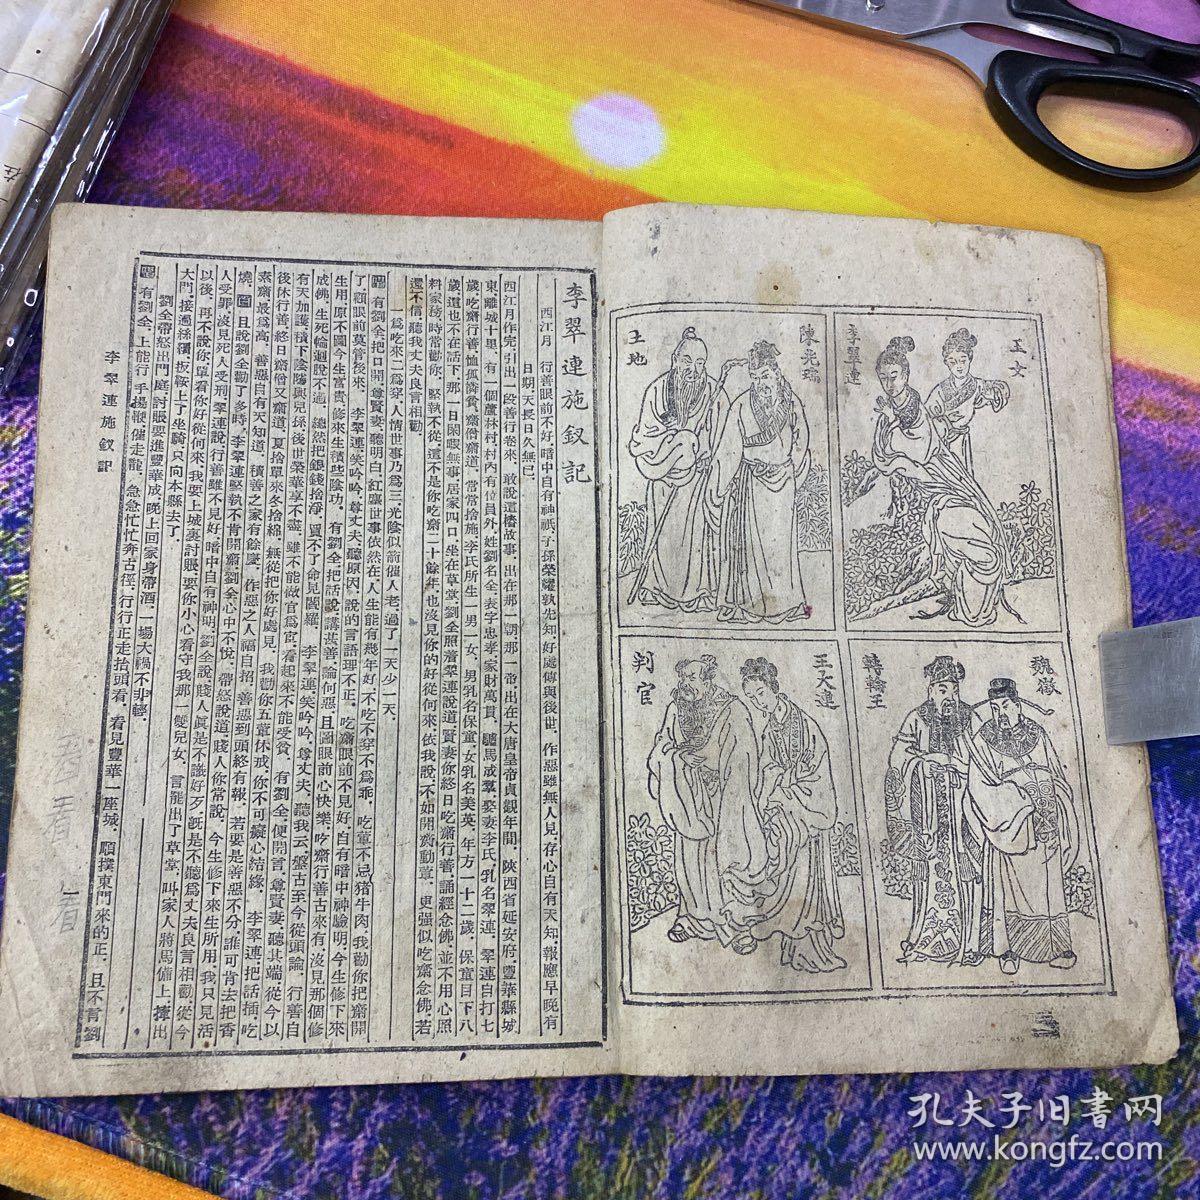 玉女
李翠連
陳光瑞
土地
魏徵
轉輪王
王大進
判官
李翠連施釵記
西江月 行善眼前不好、暗中自有神祇、子孫榮耀孰先知、好處傳與後世、作惡雖無人見、存心自有天知、報應早晚有
日期、天長日久無已、
西江月作完、引出一段善行卷來、敢說這樁故事、出在那一朝那一帝、出在大唐皇帝貞觀年間、陝西省延安府、豐華縣城
東、離城十里、有一個蘆林村、村內有位員外、姓劉名全、表字忠孝、家財萬貫、騾馬成羣、娶妻李氏、乳名翠連、翠連自打七
歲吃齋行善、恤孤憐貧、齋僧齋道、常常捨施、李氏所生一男一女、男乳名保童、女乳名美英、年方一十二歲、保童目下八
歲、這也不在話下、那一日閑暇無事、居家四口、坐在草堂、劉全照着翠連說道、賢妻你終日吃齋行善、誦經念佛、並不用心照
料家務、時常勸你、堅執不從、這不是你吃齋二十餘年、也沒見你的好從何來、依我說、不如開齋動葷、更强似吃齋念佛、若
還不信、聽我丈夫良言相勸、
爲吃來二爲穿、人情世事乃爲三、光陰似箭催人老、過了一天少一天、
唱 有劉全、把口開、尊賢妻、聽明白、紅塵世事依然在、人生能有幾年好、不吃不穿不爲乖、吃葷不忌猪牛肉、我勸你把齋開
了、顧眼前莫管後來、李翠連、笑吟吟、尊丈夫、聽原因、說的言語理不正、吃齋眼前不見好、自有暗中神驗明、今生修下來
生用、原不圖今生富貴、修來生積些陰功、有劉全、把話說、講甚善、論何惡、且圖眼前心快樂、吃齋行善古來有、沒見那個修
成佛、生死輪迴說不過、縱然把銀錢捨淨、買不了命見閻羅、李翠連、笑吟吟、尊丈夫、聽我云、盤古至今從頭論、行善自
有天加護、積下陰隲與兒孫、後世榮華享不盡、雖不能做官爲宦、看起來不能受貧、有劉全、便開言、尊賢妻、聽其端、從今以
後休行善、終日齋僧又齋道、夏捨單來冬捨綿、無從把你好處見、我勸你五葷休戒、你不可癡心結緣、李翠連、把話摘、吃
素齋、最爲高、善惡自有天知道、積善之家有餘慶、作惡之人福自招、善惡到頭終有報、若要是善惡不分、誰可肯去把香
燒、白 且說劉全勸了多時、李翠連堅執不肯開齋、劉全心中不悅、帶怒說道、賤人你常說、今生修下來生所用、我只見活
人受罪、沒見死人受刑、翠連說行善雖不見好、暗中自有神明、劉全說賤人眞是不識好歹、旣是不聽爲丈夫良言相勸、從今
以後、再不說你、單看你好從何來、我要上城裏討賬、要你小心看守我那一雙兒女、言罷出了草堂、叫家人將馬備上、摔出
大門、接過絲繮、扳鞍上了坐騎、只向本縣去了、
劉全帶怒出門庭、討賬要進豐華城、晚上回家身帶酒、一場大禍不非輕、
唱 有劉全、上能行、手揚鞭、催走龍、急急忙忙奔古徑、行行正走抬頭看、看見豐華一座城、順撲東門來的正、且不言劉
李翠連施釵記
孔夫子旧書网
www.kongfz.com